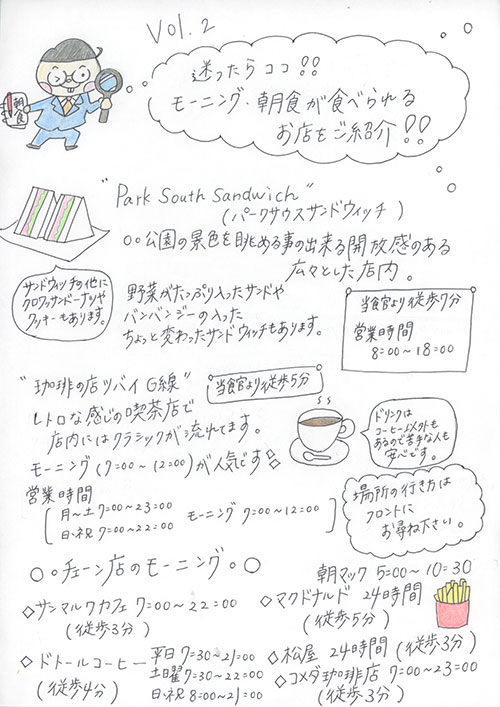 Vol.2
朝食
迷ったらココ!!
モーニング・朝食が食べられる
お店をご紹介!!
"Park South Sandwich"
(パークサウスサンドウィッチ)
○○公園の景色を眺める事の出来る開放感のある
広々とした店内。
サンドウィッチの他に
クロワッサンドーナツや
クッキーもあります。
野菜がたっぷり入ったサンドや
バンバンジーの入った
ちょっと変わったサンドウィッチもあります。
当食官より徒歩7分
営業時間
8:00~18:00
"珈琲の店ツバイG線"
当食官より徒歩5分
レトロな感じの喫茶店で
店内にはクラシックが流れてます。
モーニング(7:00~12:00)が人気です◇◇
ドリンクは
コーヒー以外も
あるので苦手な人も
安心です。
営業時間
月~土 7:00~23:00
日・祝 7:00~22:00
モーニング 7:00~12:00
場所の行き方は
フロントに
お尋ね下さい。
○○チェーン店のモーニング。○
朝マック 5:00~10:30
◇サンマルクカフェ 7:00~22:00
(徒歩3分)
◇マクドナルド 24時間
(徒歩5分)
◇ドトールコーヒー
(徒歩4分)
平日 7:30~21:00
土曜 7:30~22:00
日・祝 8:00~21:00
◇松屋 24時間(徒歩3分)
◇コメダ珈琲店 7:00~23:00
(徒歩3分)